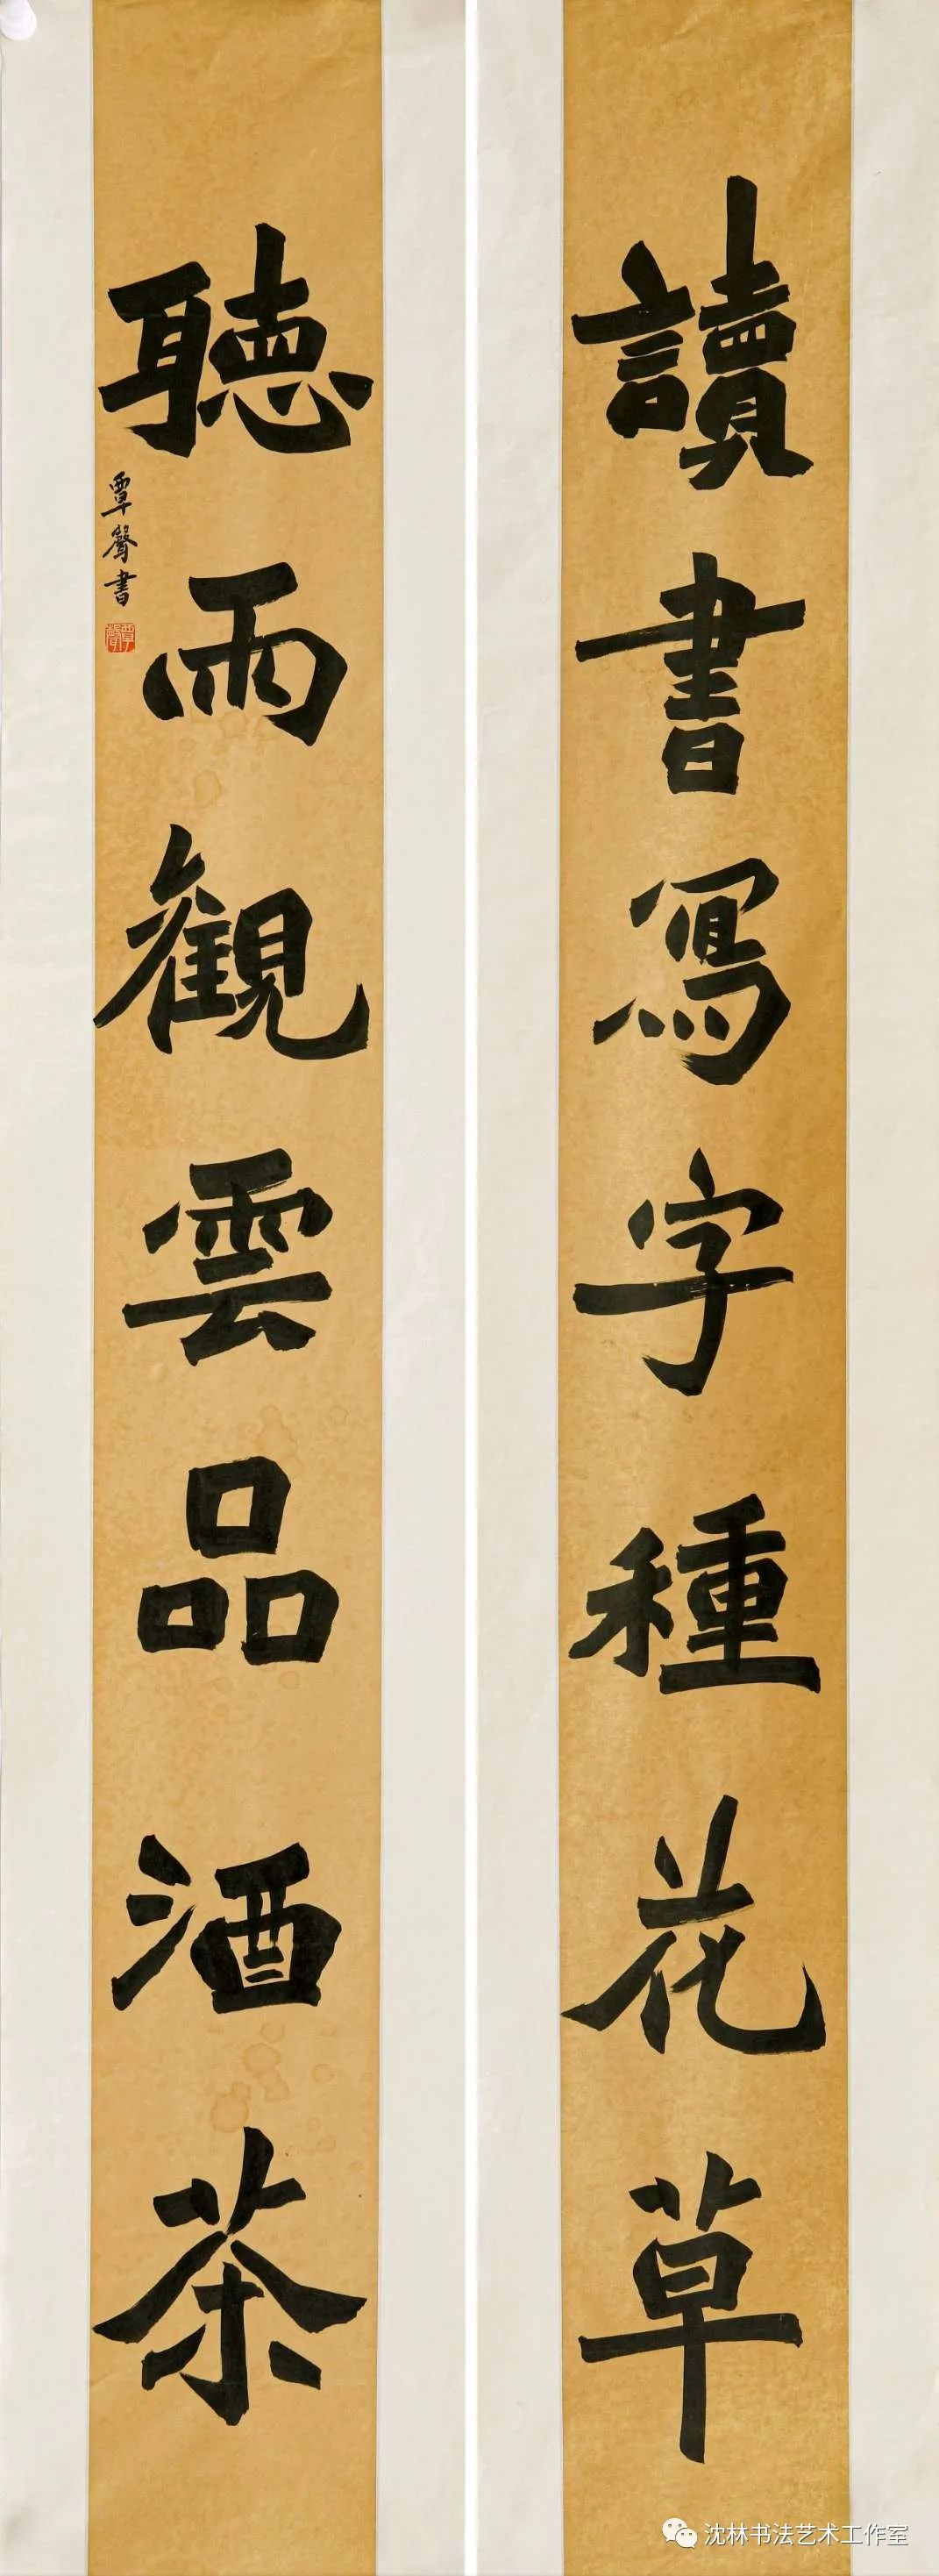 讀書寫字種花草
聽雨觀雲品酒茶
覃聲書
沈林书法艺术工作室